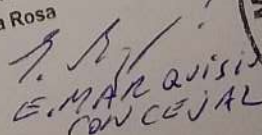 a Rosa
E. MARQUISIO
CONCEJAL